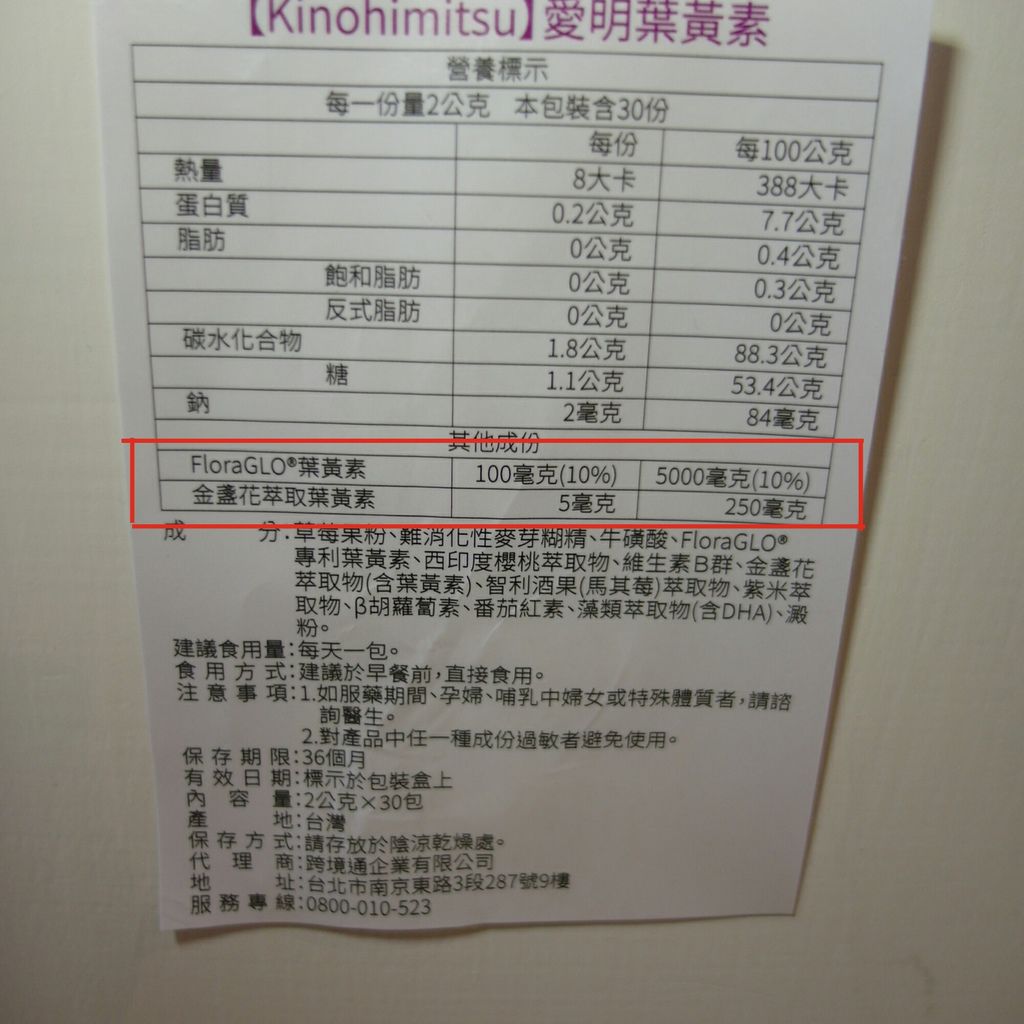 【Kinohimitsu】愛明葉黃素
營養標示
每一份量2公克 本包裝含30份
每份 每100公克
熱量 8大卡 388大卡
蛋白質 0.2公克 7.7公克
脂肪 0公克 0.4公克
飽和脂肪 0公克 0.3公克
反式脂肪 0公克 0公克
碳水化合物 1.8公克 88.3公克
糖 1.1公克 53.4公克
鈉 2毫克 84毫克
其他成份
FloraGLO®葉黃素 100毫克(10%) 5000毫克(10%)
金盞花萃取葉黃素 5毫克 250毫克
成分:草莓果粉、難消化性麥芽糊精、牛磺酸、FloraGLO®
專利葉黃素、西印度櫻桃萃取物、維生素B群、金盞花
萃取物(含葉黃素)、智利酒果(馬其莓)萃取物、紫米萃
取物、β胡蘿蔔素、番茄紅素、藻類萃取物(含DHA)、澱
粉。
建議食用量:每天一包。
食用方式:建議於早餐前,直接食用。
注意事項:1.如服藥期間、孕婦、哺乳中婦女或特殊體質者,請諮
詢醫生。
2.對產品中任一種成份過敏者避免使用。
保存期限:36個月
有效日期:標示於包裝盒上
內容量:2公克×30包
產地:台灣
保存方式:請存放於陰涼乾燥處。
代理商:跨境通企業有限公司
地址:台北市南京東路3段287號9樓
服務專線:0800-010-523